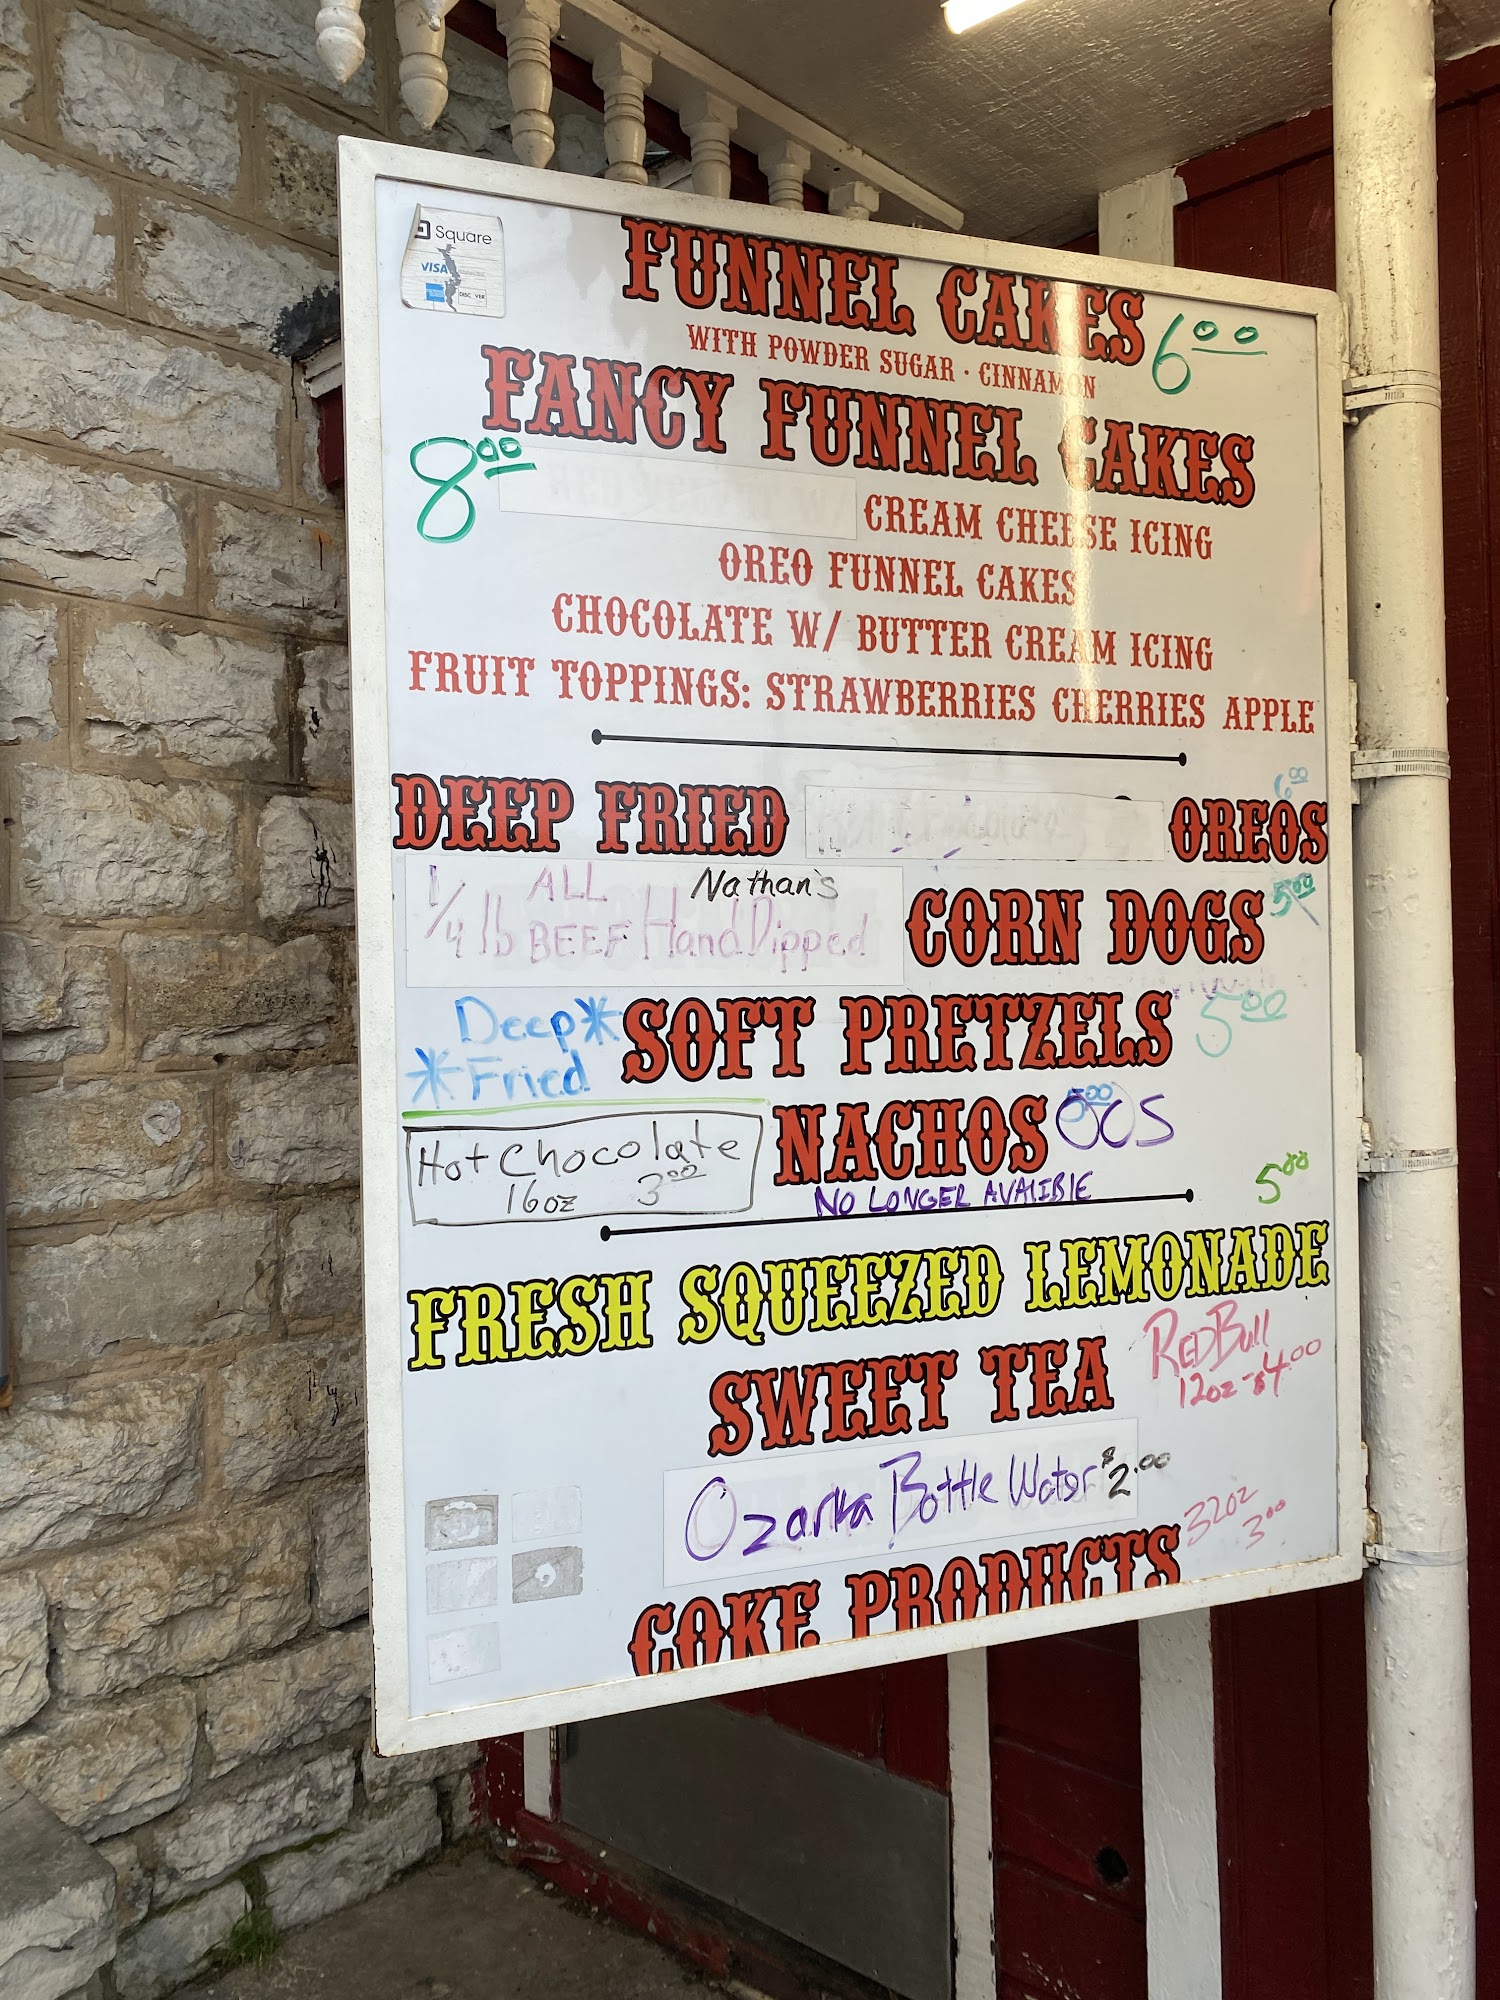 Square
VISA
FUNNEL CAKES 6.00
WITH POWDER SUGAR · CINNAMON
FANCY FUNNEL CAKES
8.00
CREAM CHEESE ICING
OREO FUNNEL CAKES
CHOCOLATE W/ BUTTER CREAM ICING
FRUIT TOPPINGS: STRAWBERRIES CHERRIES APPLE
6.00
DEEP FRIED OREOS
1/4 lb ALL BEEF Nathan's Hand Dipped
CORN DOGS 5.00
Deep*
*Fried
SOFT PRETZELS 5.00
NACHOS OCS
NO LONGER AVAIBLE
Hot Chocolate
16oz 3.00
5.00
FRESH SQUEEZED LEMONADE
SWEET TEA
RED Bull
12oz - $4.00
Ozarka Bottle Water $2.00
COKE PRODUCTS
32oz
3.00